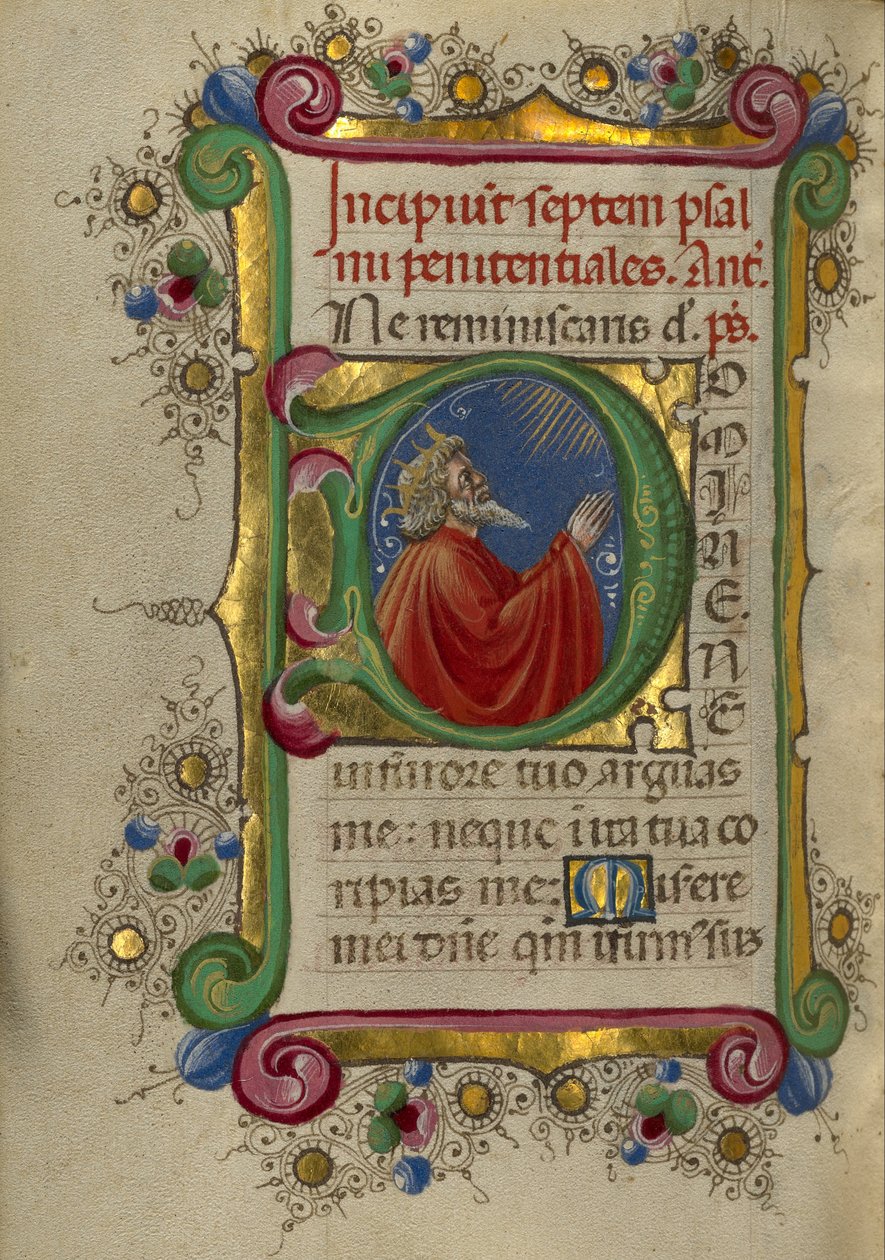 Incipiūt septem psal
mi penitentiales. Ant'.
Ne reminiscaris d'. ps.
D
O
M
I
N
E.
N
E
in furore tuo arguas
me: neque i ira tua co
ripias me: Misere
mei dn̄e qm̄ ifirm' sus